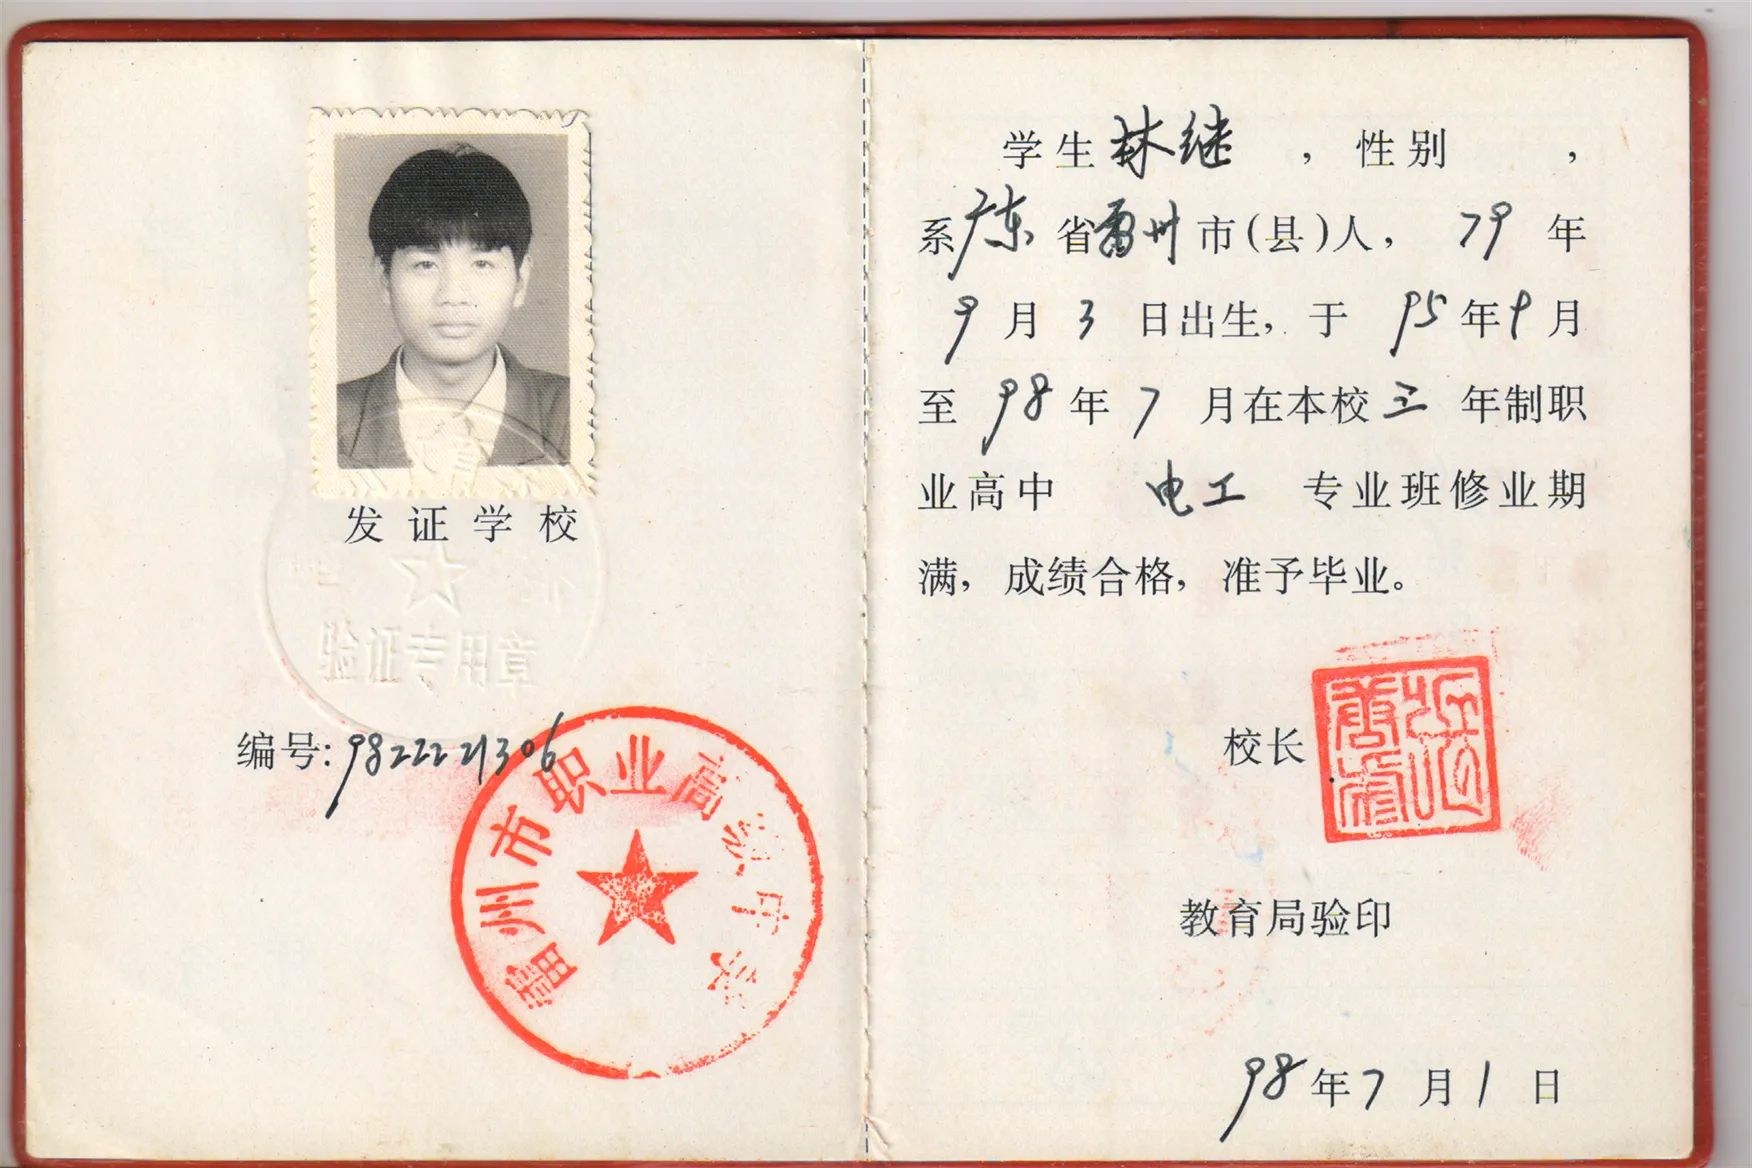 发证学校
验证专用章
编号:9822221306
雷州市职业高级中学
学生林继 ，性别 ，
系广东省雷州市(县)人， 79 年
9 月 3 日出生，于 95 年 9 月
至 98 年 7 月在本校 三 年制职
业高中 电工 专业班修业期
满，成绩合格，准予毕业。
校长
教育局验印
98 年 7 月 1 日